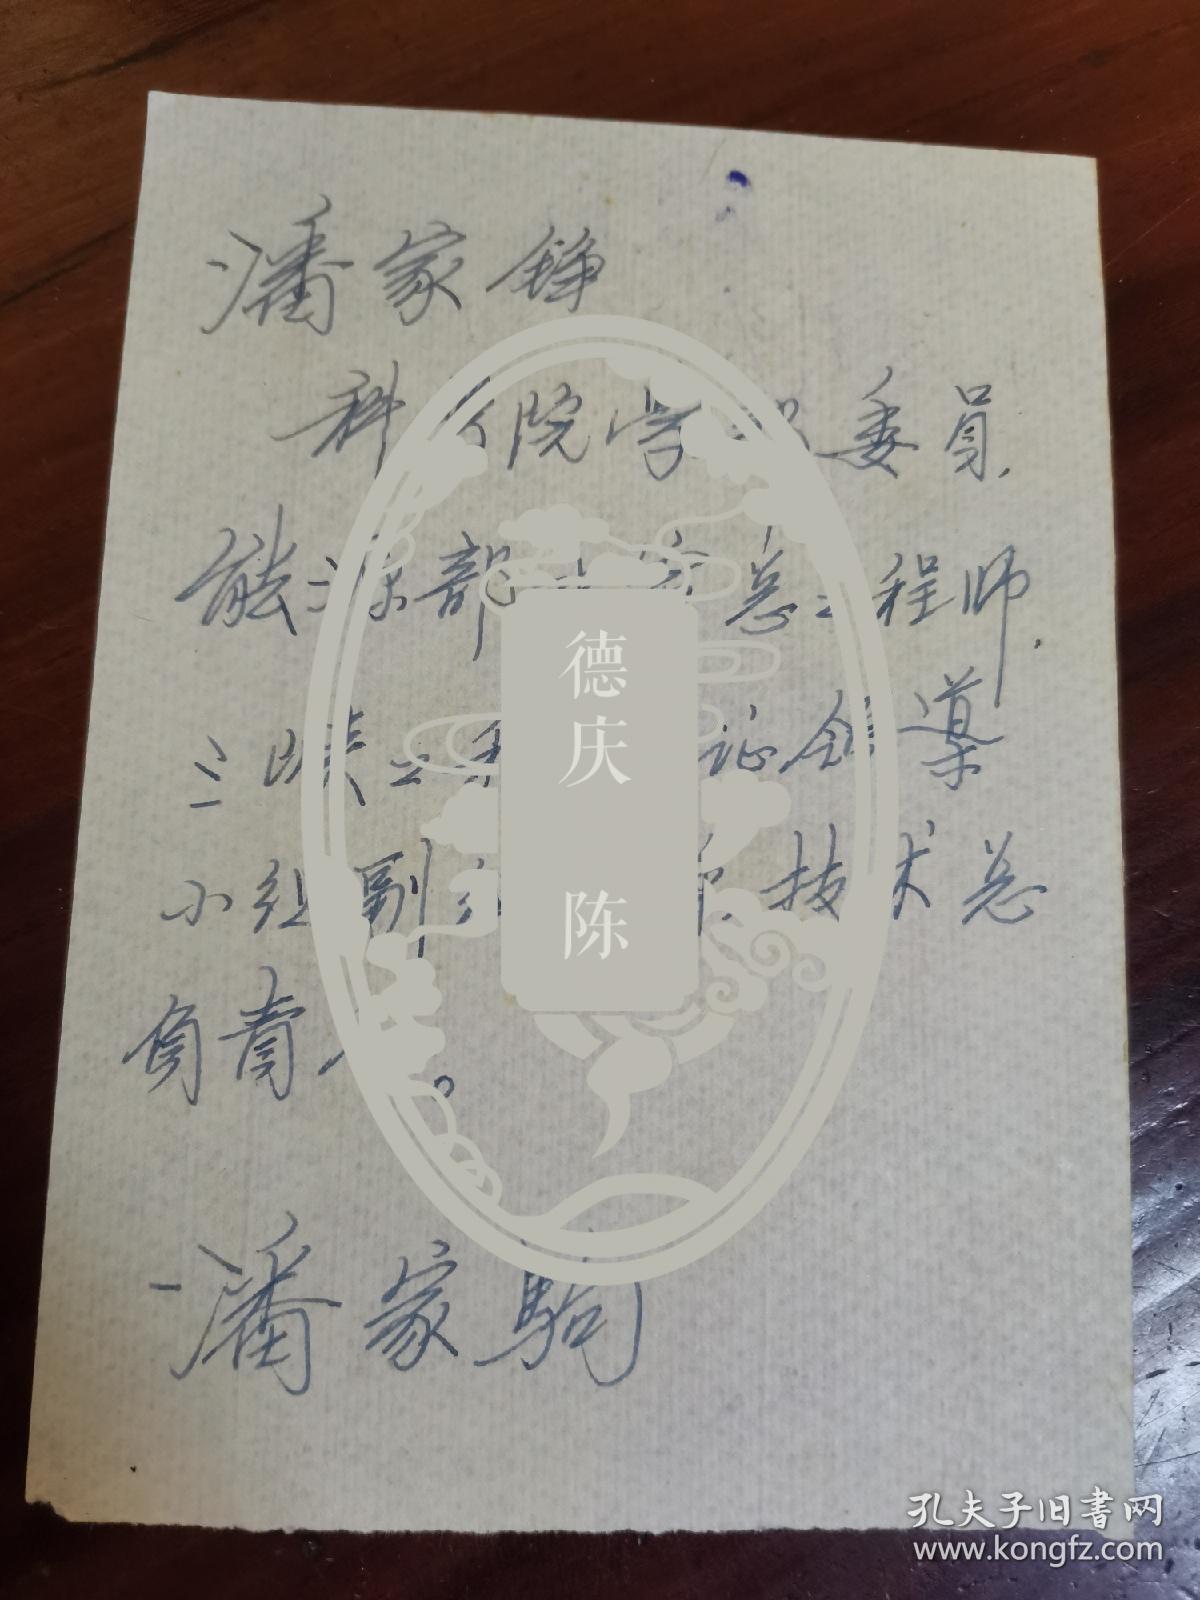 潘家铮
科 院学 委员,
能源部 总工程师.
三峡工程 证领导
小组副 技术总
负责人。
潘家驹
德庆 陈
孔夫子旧书网
www.kongfz.com